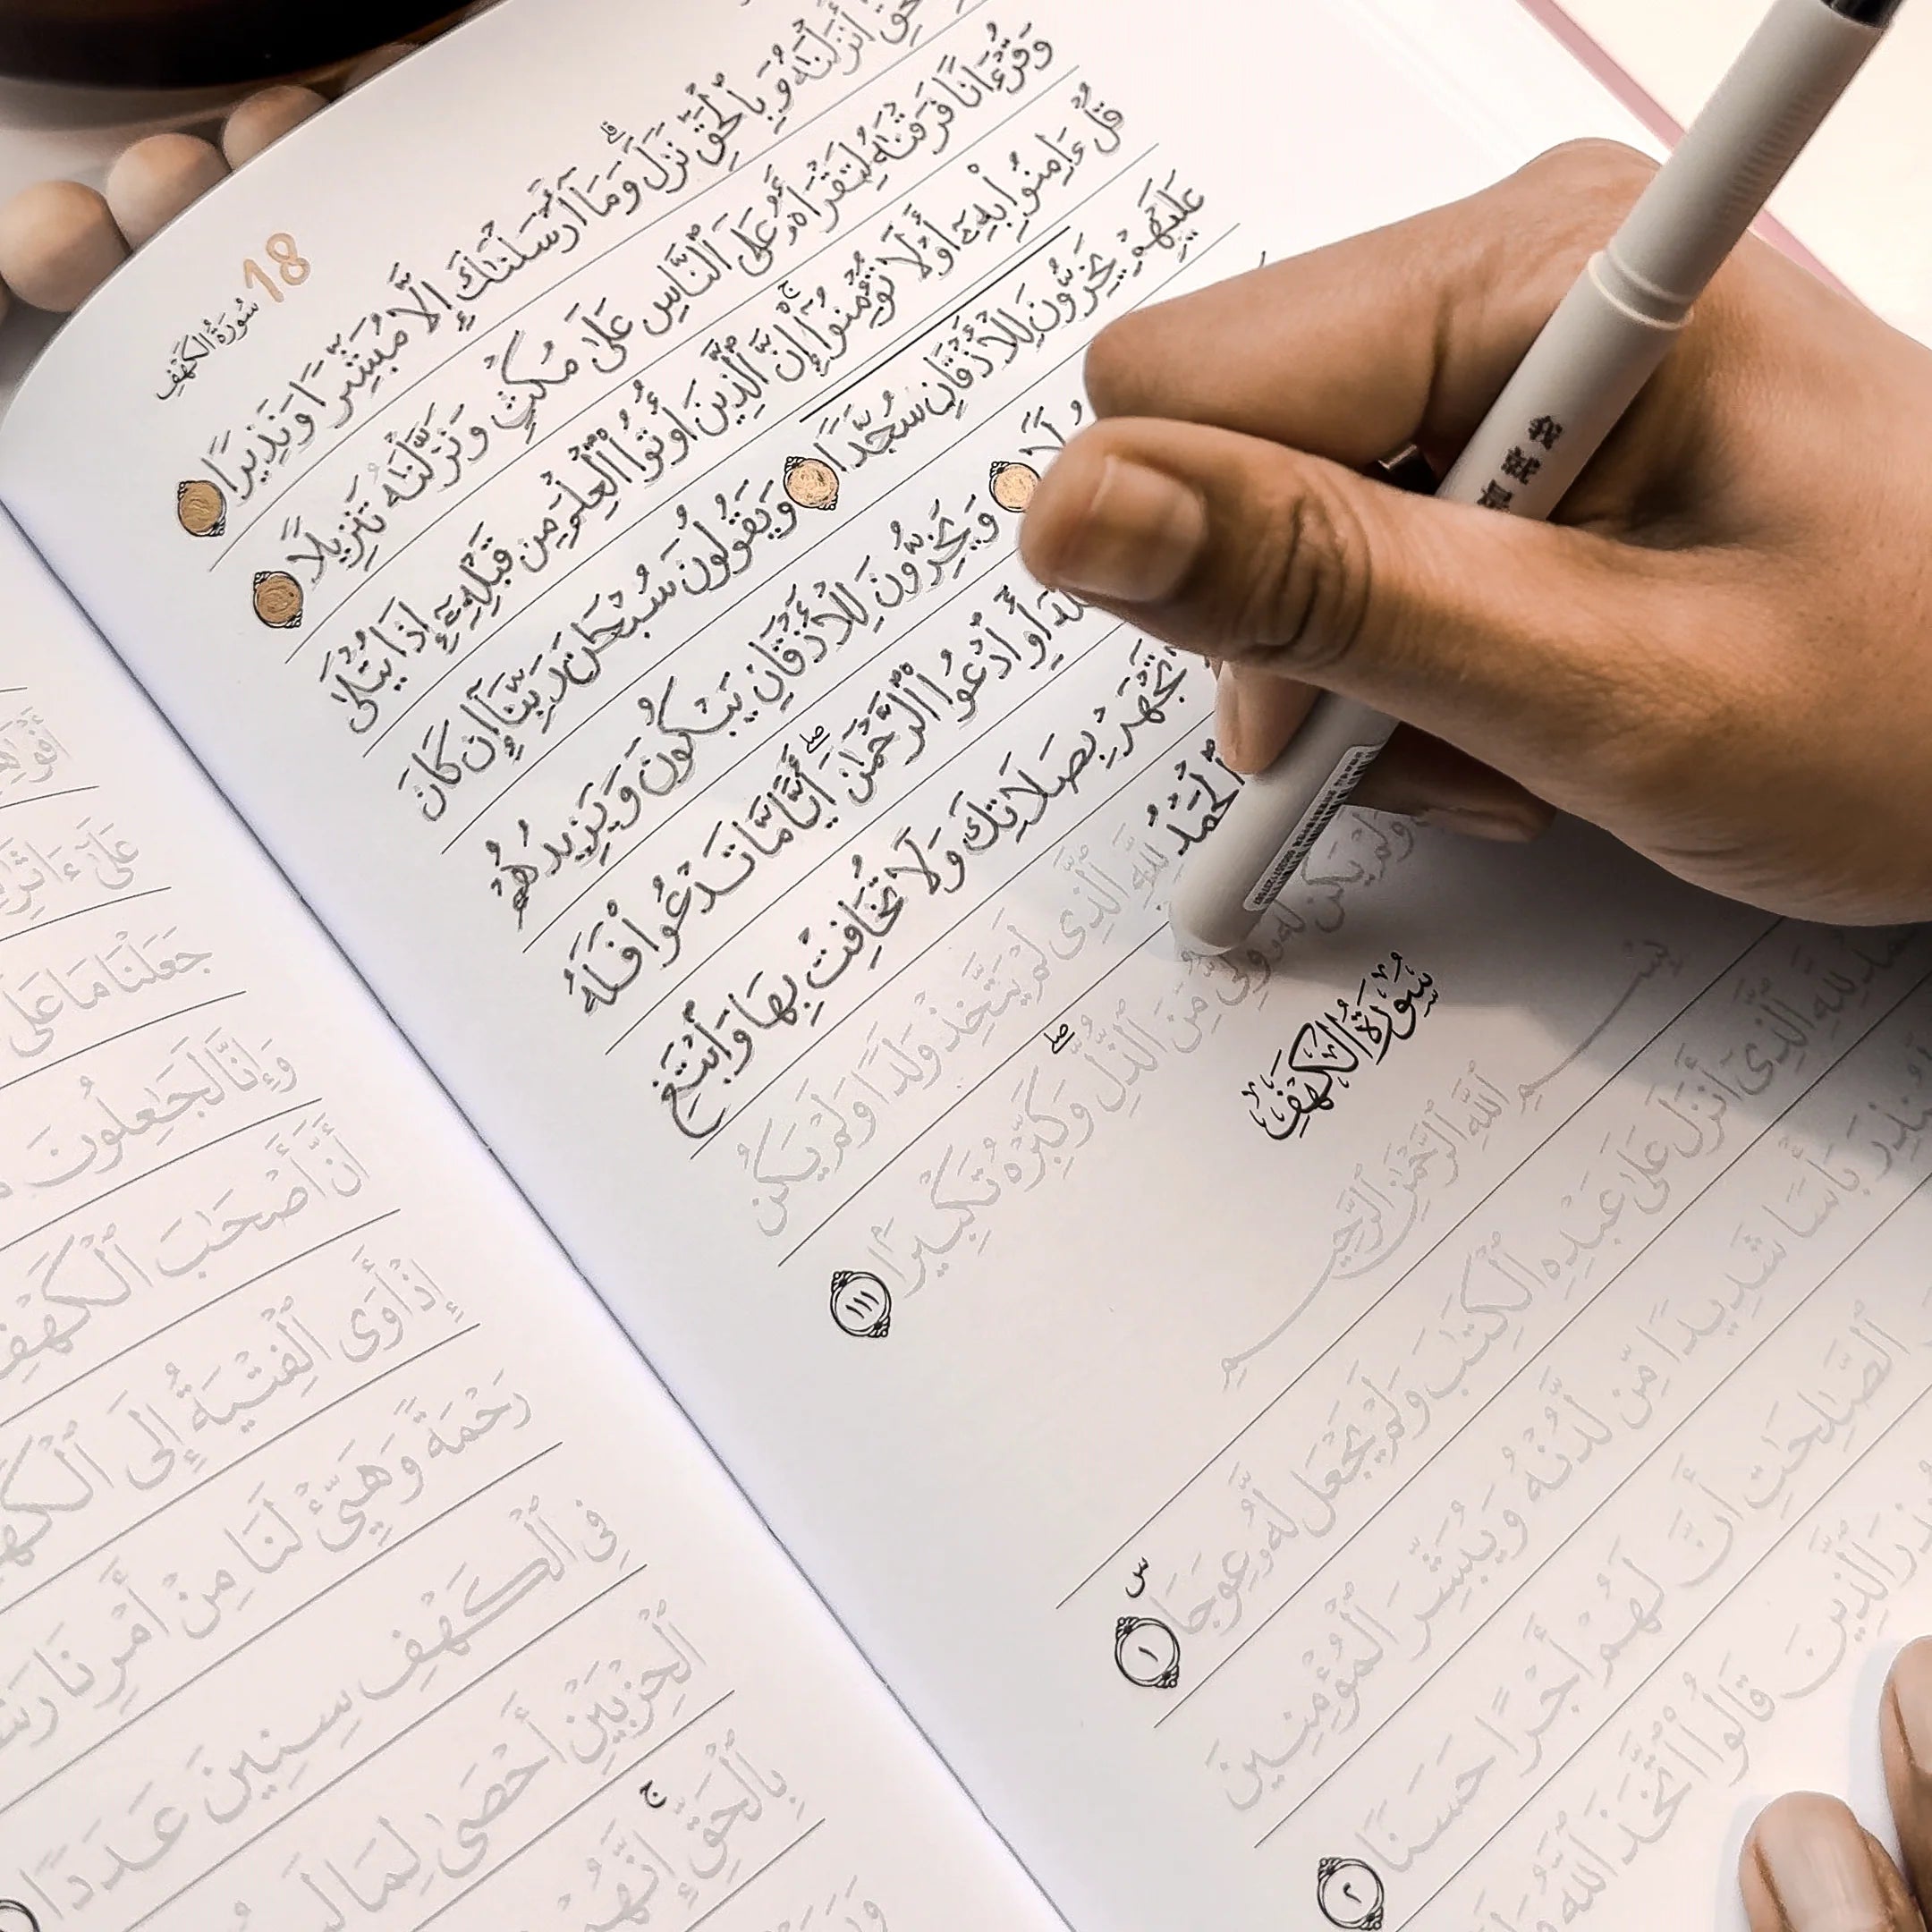 سُورَةُ الكَهْفِ 18
أَنزَلْنَٰهُ وَبِٱلْحَقِّ نَزَلَ ۗ وَمَآ أَرْسَلْنَٰكَ إِلَّا مُبَشِّرًا وَنَذِيرًا
وَقُرْءَانًا فَرَقْنَٰهُ لِتَقْرَأَهُۥ عَلَى ٱلنَّاسِ عَلَىٰ مُكْثٍ وَنَزَّلْنَٰهُ تَنزِيلًا
قُلْ ءَامِنُوا۟ بِهِۦٓ أَوْ لَا تُؤْمِنُوٓا۟ ۚ إِنَّ ٱلَّذِينَ أُوتُوا۟ ٱلْعِلْمَ مِن قَبْلِهِۦٓ إِذَا يُتْلَىٰ
عَلَيْهِمْ يَخِرُّونَ لِلْأَذْقَانِ سُجَّدًا وَيَقُولُونَ سُبْحَٰنَ رَبِّنَآ إِن كَانَ
وَيَخِرُّونَ لِلْأَذْقَانِ يَبْكُونَ وَيَزِيدُهُمْ
أَوِ ٱدْعُوا۟ ٱلرَّحْمَٰنَ ۖ أَيًّا مَّا تَدْعُوا۟ فَلَهُ
تَجْهَرْ بِصَلَاتِكَ وَلَا تُخَافِتْ بِهَا وَٱبْتَغِ
ٱلْحَمْدُ لِلَّهِ ٱلَّذِى لَمْ يَتَّخِذْ وَلَدًا وَلَمْ يَكُن
وَلَمْ يَكُن لَّهُۥ وَلِىٌّ مِّنَ ٱلذُّلِّ ۖ وَكَبِّرْهُ تَكْبِيرًۢا ١١١
سُورَةُ الكَهْفِ
بِسْمِ ٱللَّهِ ٱلرَّحْمَٰنِ ٱلرَّحِيمِ
لِلَّهِ ٱلَّذِىٓ أَنزَلَ عَلَىٰ عَبْدِهِ ٱلْكِتَٰبَ وَلَمْ يَجْعَل لَّهُۥ عِوَجَا ۜ ١
بَأْسًا شَدِيدًا مِّن لَّدُنْهُ وَيُبَشِّرَ ٱلْمُؤْمِنِينَ
ٱلصَّٰلِحَٰتِ أَنَّ لَهُمْ أَجْرًا حَسَنًا ٢
ٱلَّذِينَ قَالُوا۟ ٱتَّخَذَ ٱللَّهُ
جَعَلْنَا مَا عَلَى
وَإِنَّا لَجَٰعِلُونَ
أَنَّ أَصْحَٰبَ ٱلْكَهْفِ
إِذْ أَوَى ٱلْفِتْيَةُ إِلَى
رَحْمَةً وَهَيِّئْ لَنَا مِنْ أَمْرِنَا
فِى ٱلْكَهْفِ سِنِينَ عَدَدًا
ٱلْحِزْبَيْنِ أَحْصَىٰ لِمَا
بِٱلْحَقِّ ۚ إِنَّهُمْ